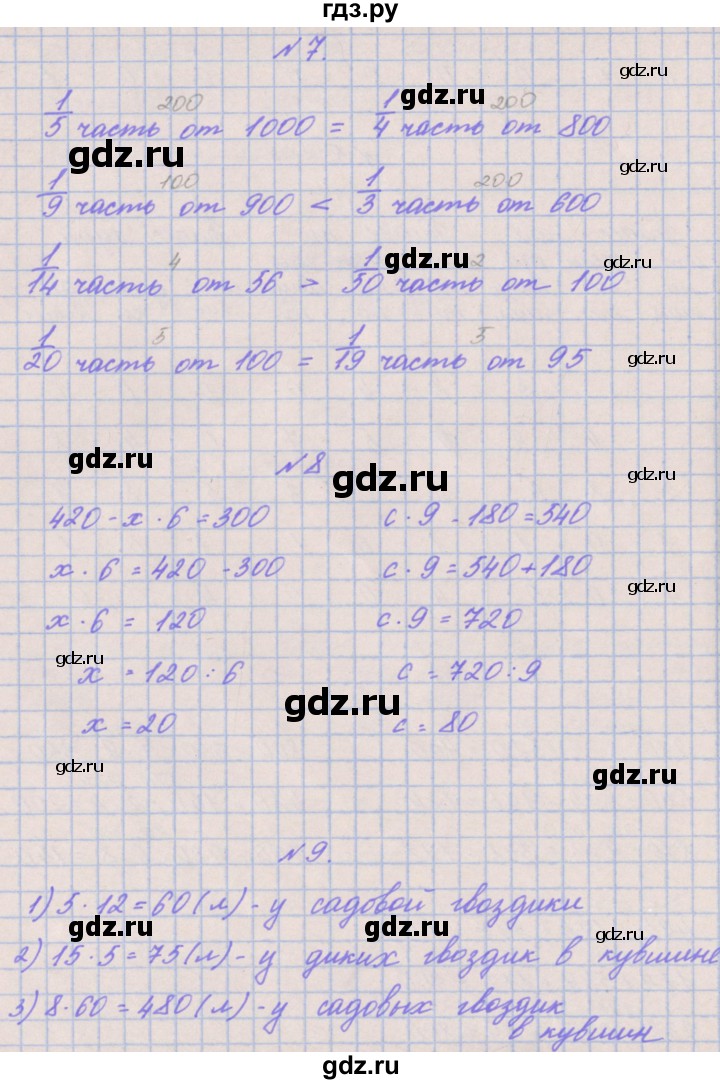 гдз.ру
№ 7.
gdz.ru
200 gdz.ru 200
1/5 часть от 1000 = 1/4 часть от 800
gdz.ru
gdz.ru
100 200
1/9 часть от 900 < 1/3 часть от 600
gdz.ru gdz.ru
4 2
1/14 часть от 56 > 1/50 часть от 100
5 5
1/20 часть от 100 = 1/19 часть от 95
gdz.ru
gdz.ru № 8 gdz.ru gdz.ru
420 - х · 6 = 300 с · 9 - 180 = 540
х · 6 = 420 - 300 с · 9 = 540 + 180
gdz.ru
х · 6 = 120 с · 9 = 720
gdz.ru
х = 120 : 6 с = 720 : 9
gdz.ru
х = 20 с = 80
gdz.ru gdz.ru
№ 9.
1) 5 · 12 = 60 (л) - у садовой гвоздики
gdz.ru gdz.ru gdz.ru
2) 15 · 5 = 75 (л) - у диких гвоздик в кувшине
3) 8 · 60 = 480 (л) - у садовых гвоздик
gdz.ru gdz.ru gdz.ru
в кувшин
gdz.ru